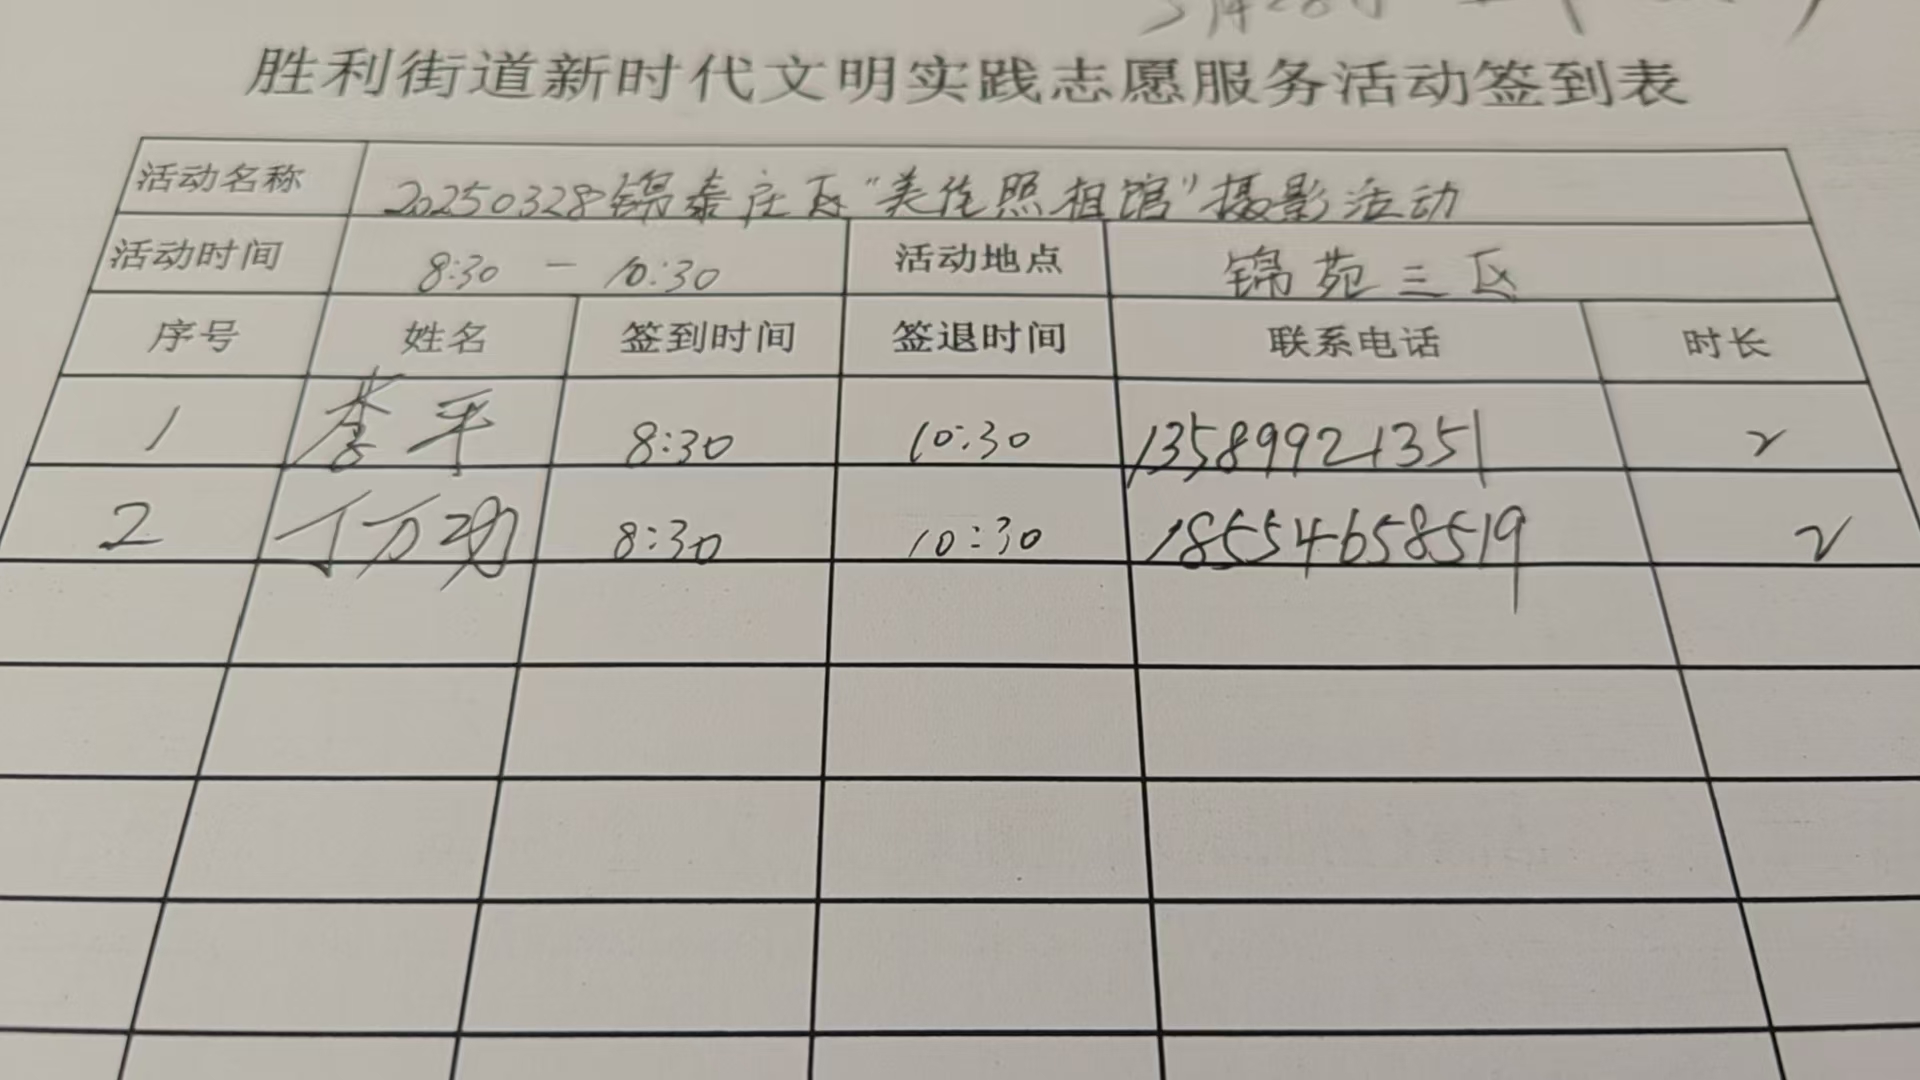 3月28日
胜利街道新时代文明实践志愿服务活动签到表
活动名称 20250328锦泰庄区"美佳照相馆"摄影活动
活动时间 8:30 — 10:30 活动地点 锦苑三区
序号 姓名 签到时间 签退时间 联系电话 时长
1 李平 8:30 10:30 13589921351 2
2 丁万功 8:30 10:30 18554658519 2